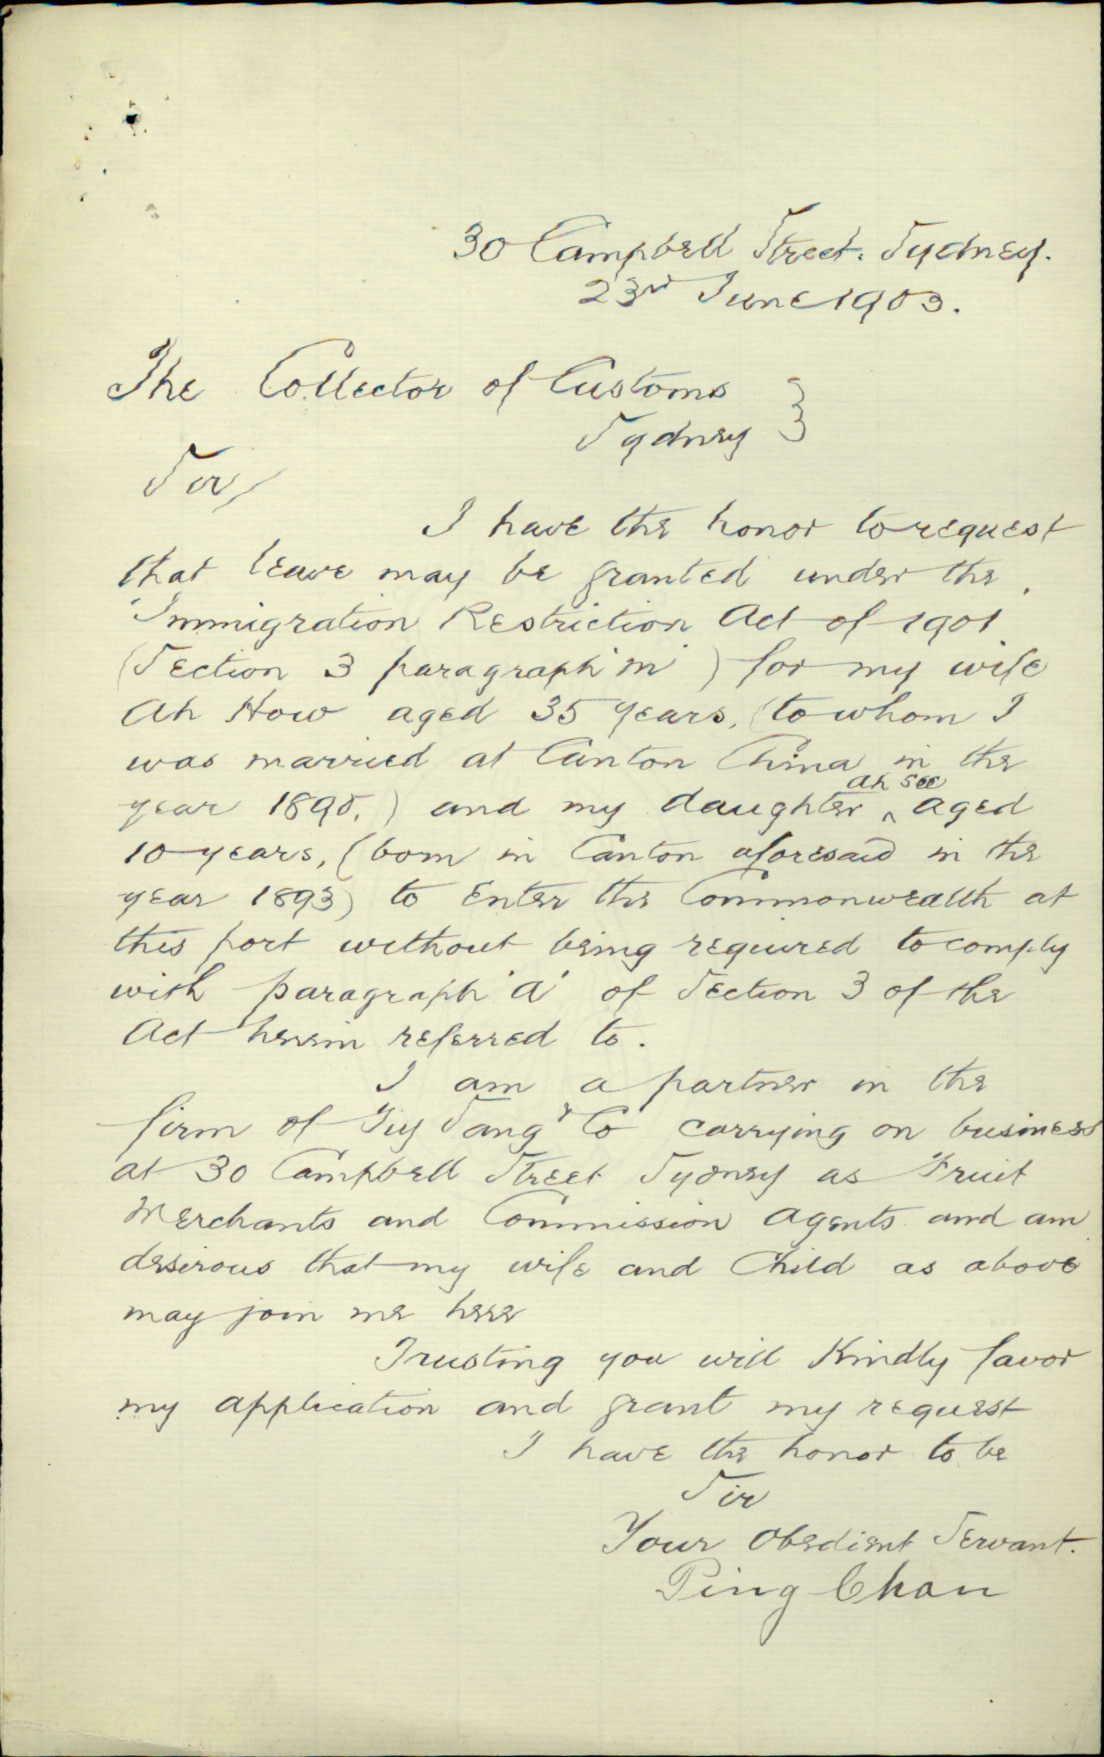 30 Campbell Street. Sydney.
23rd June 1903.
The Collector of Customs }
Sydney
Sir/
I have the honor to request
that leave may be granted under the
"Immigration Restriction Act of 1901
(Section 3 paragraph 'm') for my wife
Ah How aged 35 years, (to whom I
was married at Canton China in the
year 1890,) and my daughter ^ Ah See aged
10 years, (born in Canton aforesaid in the
year 1893) to enter the Commonwealth at
this port without being required to comply
with paragraph 'a' of Section 3 of the
Act herein referred to.
I am a partner in the
firm of Sang & Co carrying on business
at 30 Campbell Street Sydney as Fruit
Merchants and Commission Agents and am
desirous that my wife and Child as above
may join me here
Trusting you will Kindly favor
my application and grant my request
I have the honor to be
Sir
Your Obedient Servant.
Ping Chan